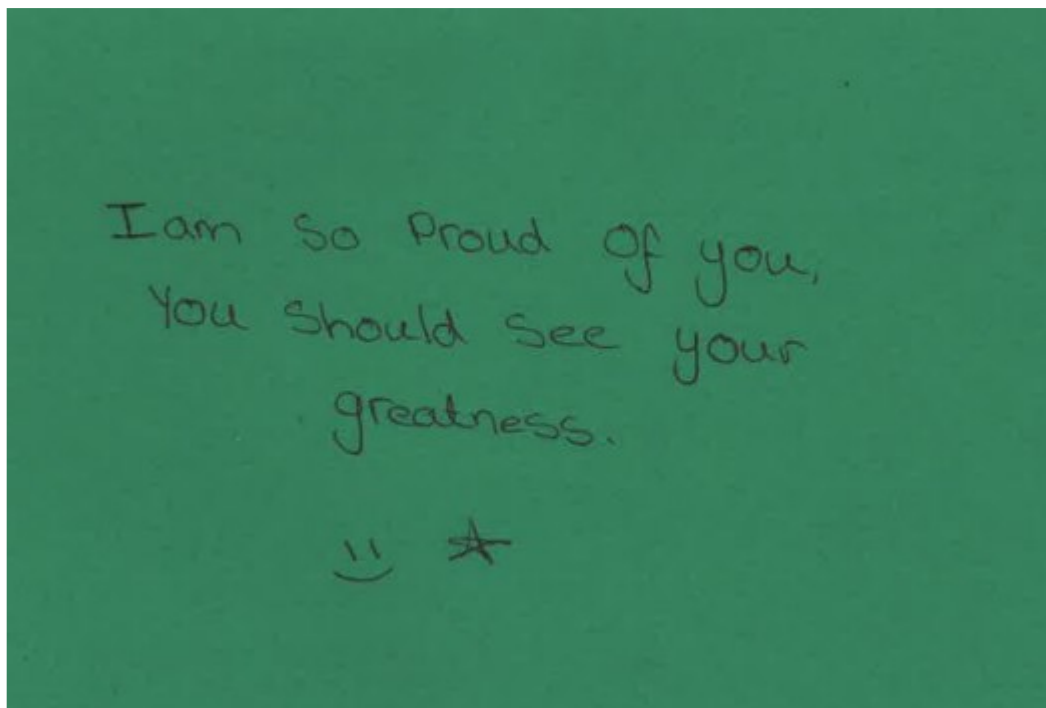 I am so Proud of you,
You should see your
greatness.